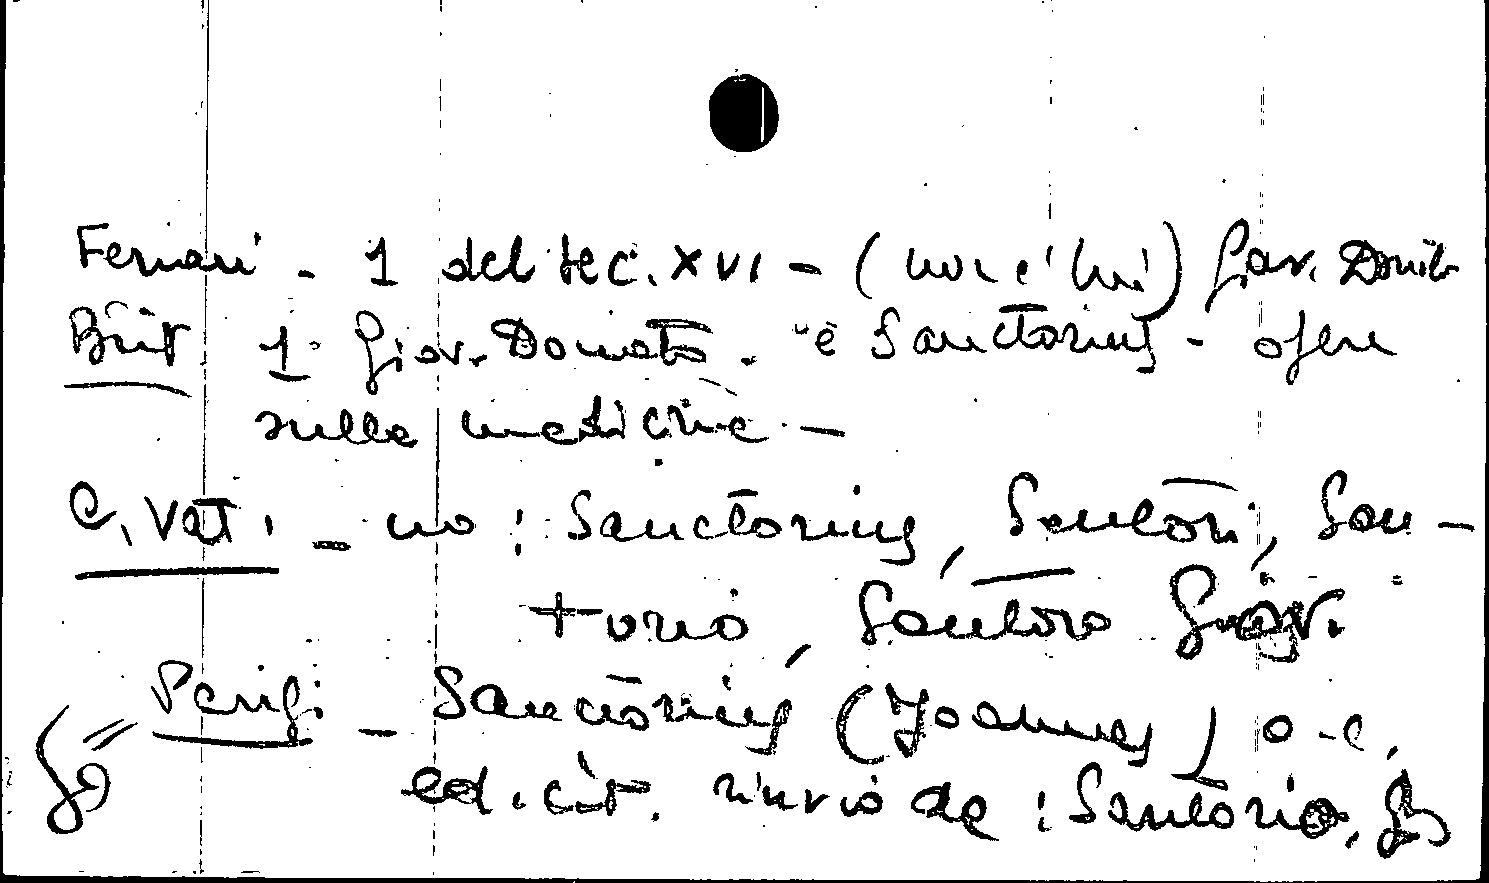 Ferrari - 1 del sec. XVI - (non è lui) Giov. Donato
Brit. 1 Giov. Donato. è Sanctorius - opere
sulla medicina -
C. Vat. - no: Sanctorius, Santori, San-
torio, Santoro Giov.
Parigi - Sanctorius (Joannes) o.c.
ed. cit. rinvio da: Santorio, G